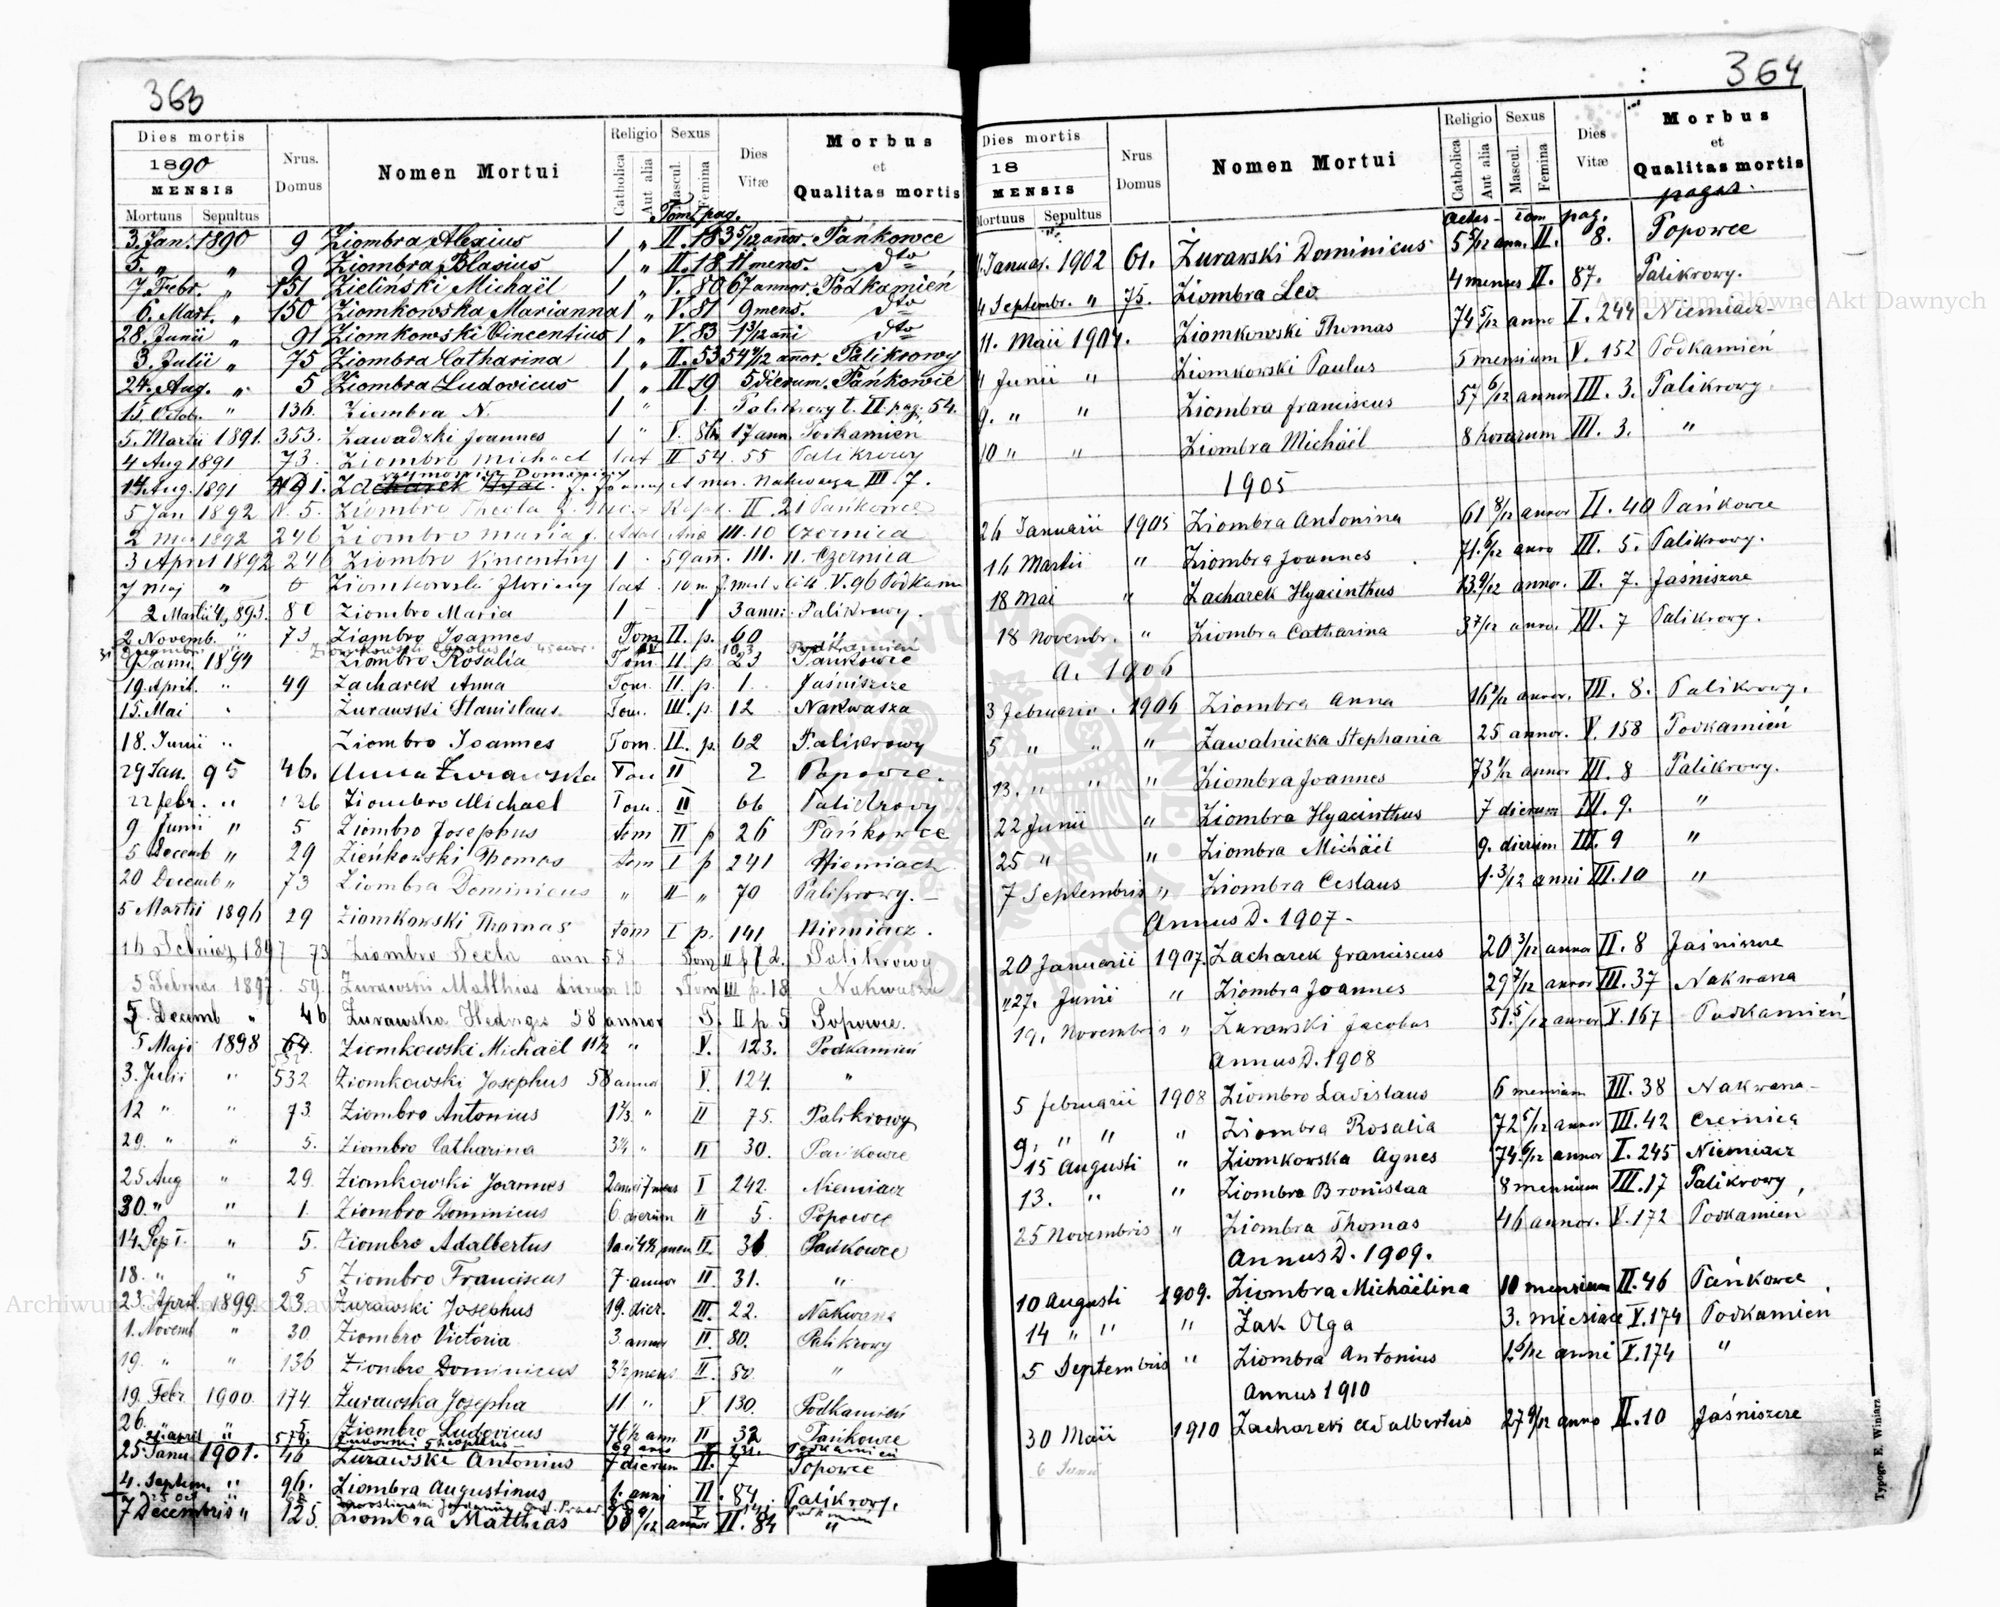 363
Dies mortis
1890
MENSIS
Mortuus Sepultus
Nrus. Domus
Nomen Mortui
Religio
Catholica
Aut alia
Sexus
Mascul.
Femina
Dies Vitæ
Morbus et Qualitas mortis
Tom. pag.
3. Jan. 1890 9 Ziombra Alexius 1 „ II. 18 3 5/12 annor. Pańkowce
5. „ „ 9 Ziombra Blasius 1 „ II. 18 11 mens. dto
7 Febr. „ 151 Zieliński Michaël 1 „ V. 80 67 annor. Podkamień
6. Mart. „ 150 Ziomkowska Marianna 1 „ V. 81 9 mens. dto
28. Junii „ 91 Ziomkowski Vincentius 1 „ V. 83 1 3/12 ani dto
3. Julii „ 75 Ziombra Catharina 1 „ II. 53 54 4/12 anor. Palikrowy
24. Aug. „ 5 Ziombra Ludovicus 1 „ II 19 5 dierum. Pańkowce
15. Octob. " 136. Ziembra N. 1 " 1. Palikrowy t. II pag. 54.
5. Martii 1891. 353. Zawadzki Joannes 1 " V. 86 17 ann. Podkamień
4 Aug 1891 73. Ziombro Michael lat II 54. 55 Palikrowy
14 Aug. 1891 Nakwasza III. 7.
5 Jan 1892 N. 5. Ziombro Thecla II. 21 Pańkowce
2 1892 246 Ziombro Maria III. 10 Czernica
3 April 1892 246 Ziombro Vincentius 1 59 an. III. 11. Czernica
7 Maj " Ziomkowski Floriany lat V. 96 Podkam
2 Martii 1893. 80 Ziombro Maria 1 – 1 3 anni. Palikrowy.
2 Novemb. " 73 Ziombro Joannes Tom II. p. 60
Podkamień
9 Jann. 1894 Ziombro Rosalia Tom II p. 23 Pańkowce
19. April. " 49 Zacharek Anna Tom. II. p. 1. Jaśniszcze
15. Mai " Żurawski Stanislaus. Tom. III. p. 12 Nakwasza
18. Junii " Ziombro Joannes Tom. II. p. 62 Palikrowy
29 Jan. 95 46. Anna Żurawska Tom II 2 Popowce.
22 febr. " 136 Ziombro Michael Tom. II 66 Palikrowy
9 Junii " 5 Ziombro Josephus tom II p 26 Pańkowce
5 Decemb " 29 Zieńkowski Thomas tom I p 241 Niemiacz
20 Decemb " 73 Ziombra Dominicus " II " 70 Palikrowy.
5 Martii 1896 29 Ziomkowski Thomas tom I p. 141 Niemiacz.
16 1897 73 Ziombro Tecla ann 58 Tom II p 72. Palikrowy
3 Februar 1897. 59. Żurawski Matthias dierum 10 Tom III p. 18 Nakwasza
5. Decemb " 46 Żurawska Hedvigis 58 annor T. II p. 5 Popowce.
5 Maji 1898 64. Ziomkowski Michaël 11½ " V. 123. Podkamień
3. Julii " 532 Ziomkowski Josephus 58 annor V. 124. "
12 " " 73 Ziombro Antonius II 75. Palikrowy
29. " " 5. Ziombro Catharina II 30. Pańkowce
25 Aug " 29 Ziomkowski Joannes 2 anni 7 mens I 242. Niemiacz
30. " " 1. Ziombro Dominicus 6. dierum II 5. Popowce
14 Sept. " 5. Ziombro Adalbertus II 31 Pańkowce
18. " " 5 Ziombro Franciscus 7 annor II 31. "
23. April. 1899. 23. Żurawski Josephus 19. dier. III. 22. Nakwasza
1. Novemb " 30. Ziombro Victoria 3 annor II 80. Palikrowy
19. " " 136 Ziombro Dominicus 3½ mens II. 80. "
19. Febr. 1900. 174. Żurawska Josepha 11 " V 130. Podkamień
26. " 5. Ziombro Ludovicus 76½ ann II 32 Pańkowce
25. Janu 1901. 46 Żurawski Antonius 7 dierum II. 7 Popowce
4. Septem. " 96. Ziombra Augustinus 1. anni II. 84 Palikrowy.
7 Decembris " 125. Ziombra Matthias 68 9/12 annor II. 84 "
364
Dies mortis
18
MENSIS
Mortuus Sepultus
Nrus Domus
Nomen Mortui
Religio
Catholica
Aut alia
Sexus
Mascul.
Femina
Dies Vitæ
Morbus et Qualitas mortis
aetas tom pag. pagus.
Januar. 1902 61. Żurawski Dominicus 5 5/12 ann. II. 8. Popowce
4 Septembr. " 75. Ziombra Leo 4 menses II. 87. Palikrowy.
11. Maii 1904. Ziomkowski Thomas 74 5/12 anno I. 244 Niemiacz
4 Junii " Ziomkowski Paulus 5 mensium V. 152 Podkamień
9. " " Ziombra Franciscus 57 6/12 annor III. 3. Palikrowy.
10 " " Ziombra Michäel 8 horarum III. 3. "
1905
26 Januarii 1905 Ziombra Antonina 61 8/12 annor II. 40 Pańkowce
16 Martii " Ziombra Joannes 71. 6/12 anno III. 5. Palikrowy.
18 Mai " Zacharek Hyacinthus 13 9/12 annor. II. 7. Jaśniszcze
18 Novembr. " Ziombra Catharina 3 7/12 anno. III. 7 Palikrowy.
A. 1906
3 Februario. 1906 Ziombra Anna annor. III. 8. Palikrowy.
5 " " " Zawalnicka Stephania 25 annor. V. 158 Podkamień
13. " " " Ziombra Joannes annor III. 8 Palikrowy.
22 Junii " Ziombra Hyacinthus 7 dierum III. 9. "
25 " " Ziombra Michäel 9. dierum III. 9 "
7 Septembris " Ziombra Ceslaus 1. 3/12 anni III. 10 "
Annus D. 1907 -
20 Januarii 1907. Zacharek Franciscus 20 3/12 annor II. 8 Jaśniszcze
27. Junii " Ziombra Joannes 29 7/12 annor III. 37 Nakwasza
19. Novembris " Żurawski Jacobus 51. 5/12 annor V. 167 Podkamień
Annus D. 1908
5 Februarii 1908 Ziombro Ladislaus 6 mensium III. 38 Nakwasza
9, " " " Ziombra Rosalia 72 5/12 annor III. 42 Czernica
15 Augusti " Ziomkowska Agnes 74. 6/12 annor I. 245 Niemiacz
13. " " Ziombra Bronislaa 8 mensium III. 17 Palikrowy
25 Novembris " Ziombra Thomas 46 annor. V. 172 Podkamień
Annus D. 1909.
10 Augusti 1909. Ziombra Michäelina 10 mensium II. 46 Pańkowce
14 " " " Żak Olga 3. miesiące V. 174 Podkamień
5 Septembris " Ziombra Antonius 1. 5/12 anni V. 174 "
Annus 1910
30 Maii 1910 Zacharek Adalbertus 27 9/12 anno II. 10 Jaśniszcze
Typogr. E. Winiarz
Archiwum Główne Akt Dawnych
Archiwum Główne Akt Dawnych